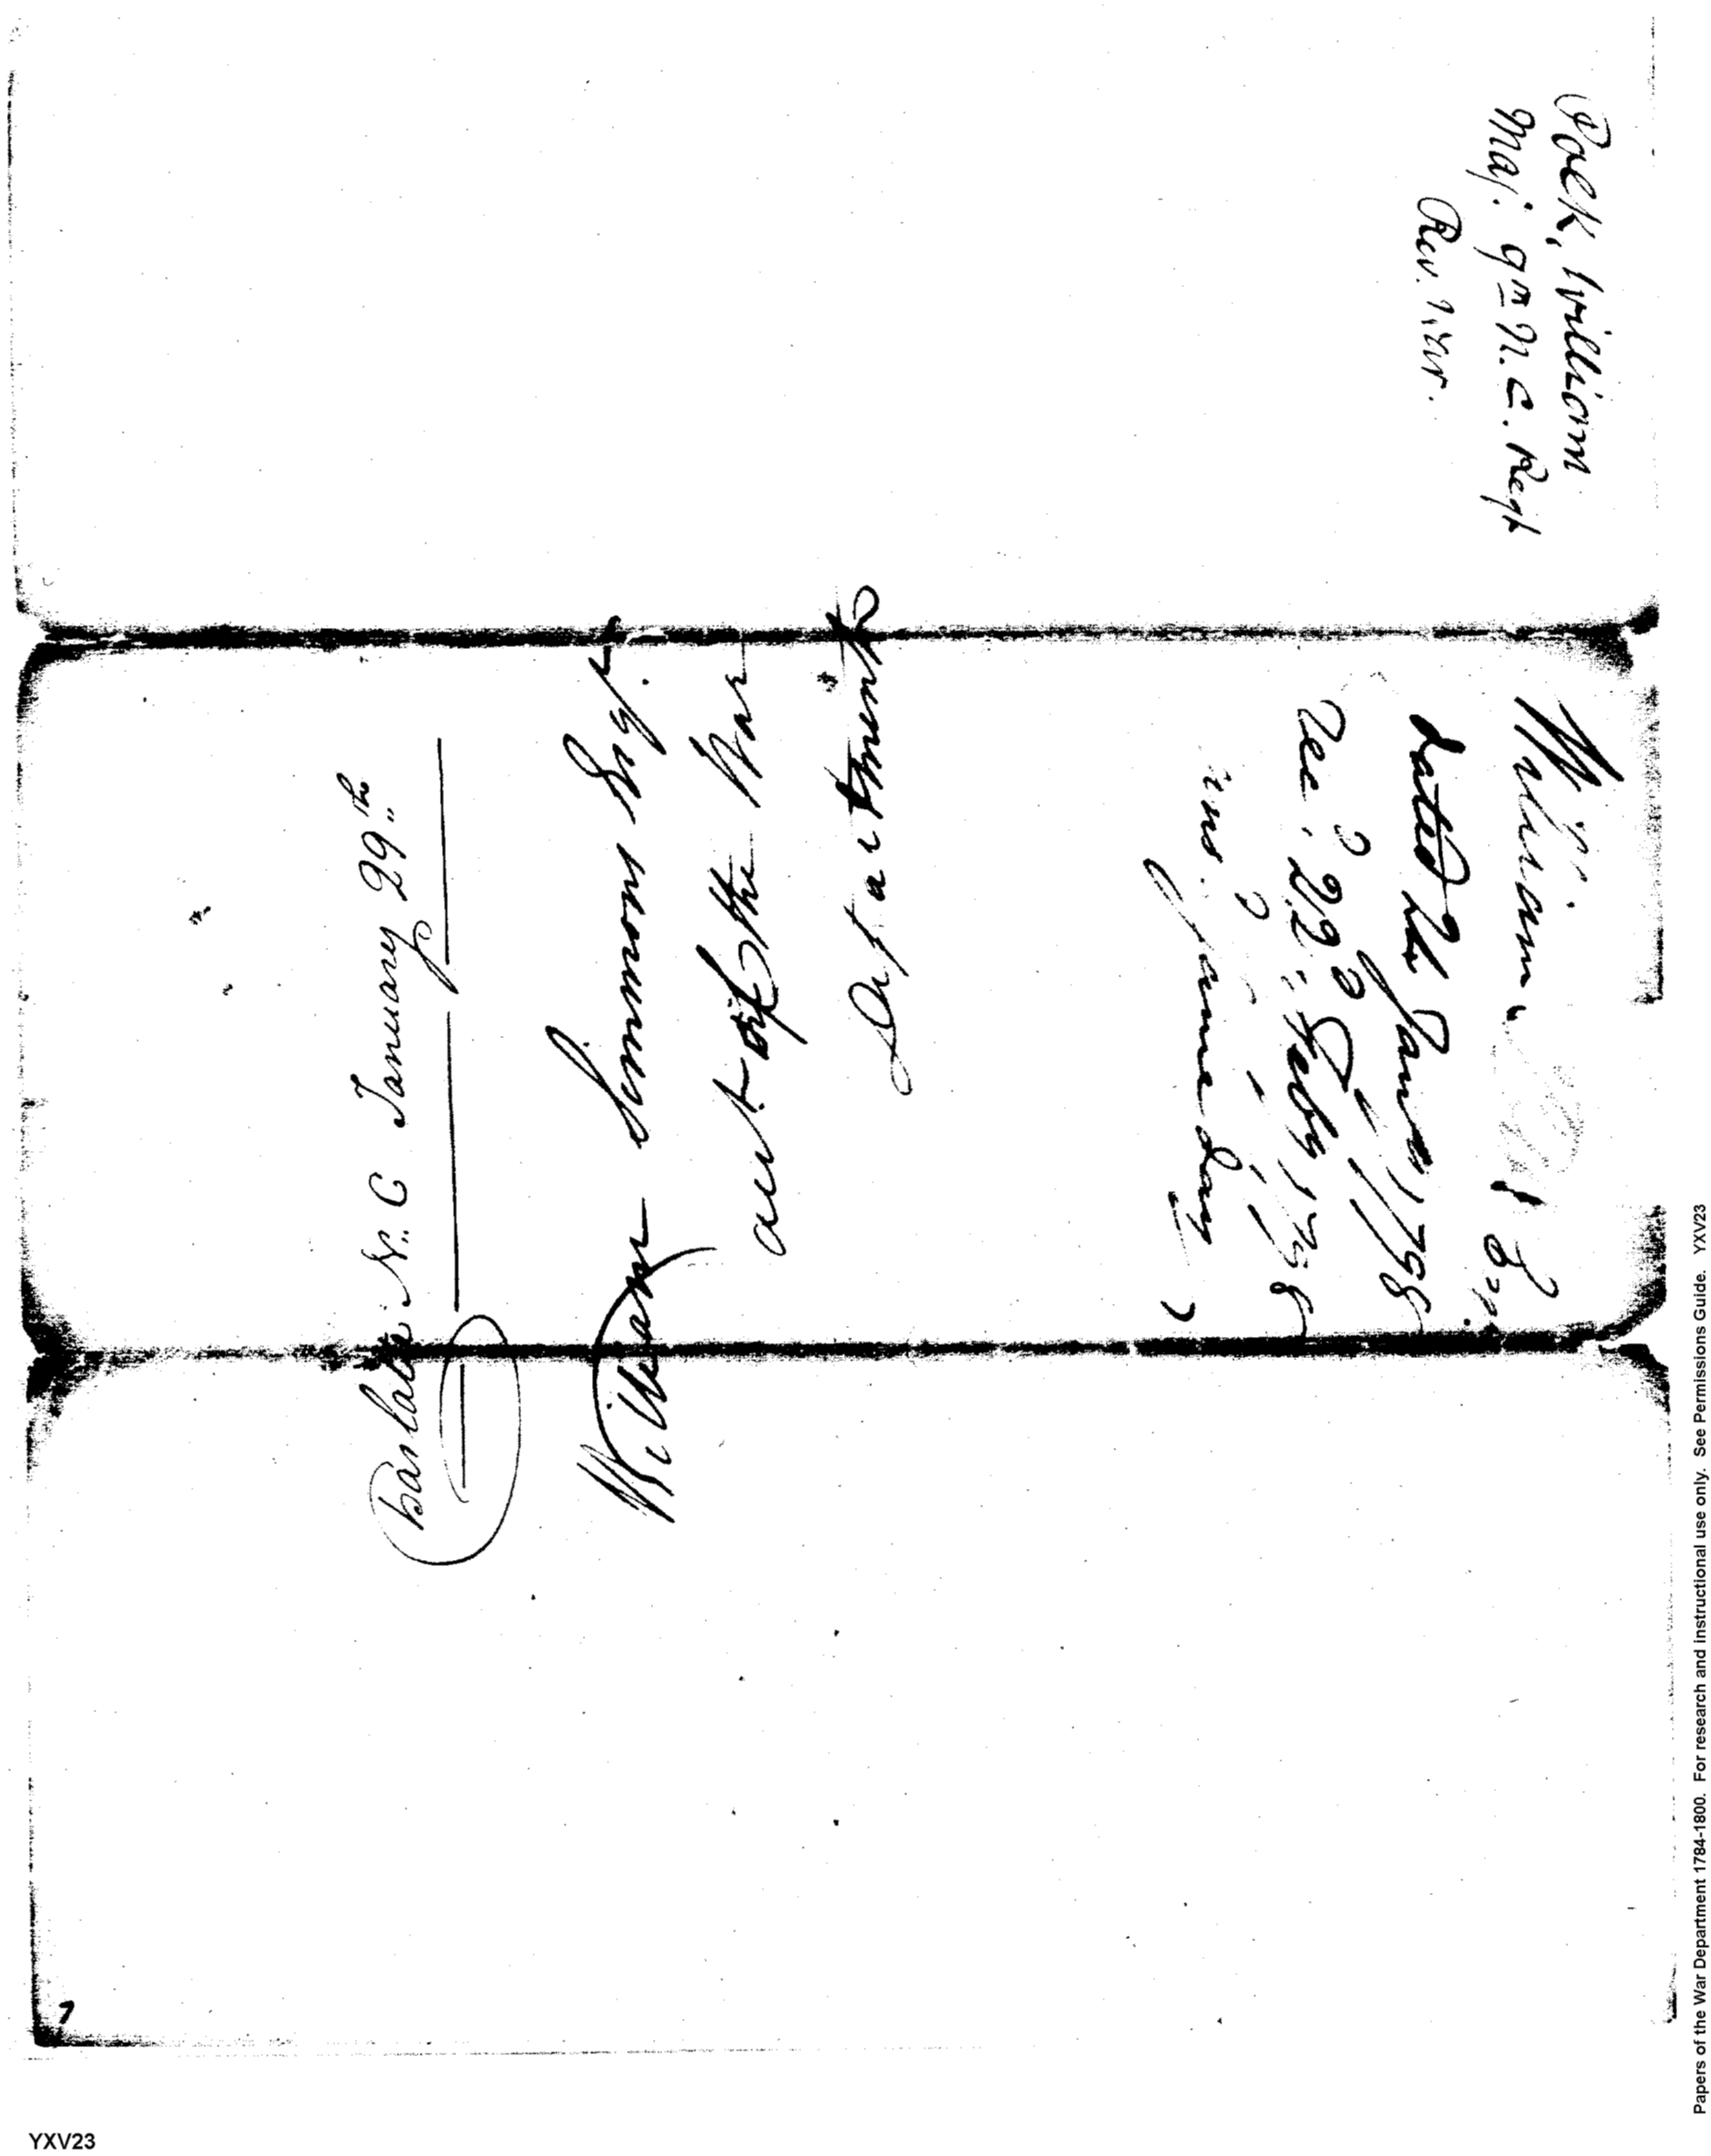 Polk, William
Maj: 9th N. C. Regt
Rev. War.
William Polk
dated 24 Jany 1798
Recd. 22d Feby 1798
ans. same day
Charlotte N. C January 29th
William Simmons Esqr.
acct of the War
Department
7
YXV23
Papers of the War Department 1784-1800. For research and instructional use only. See Permissions Guide. YXV23